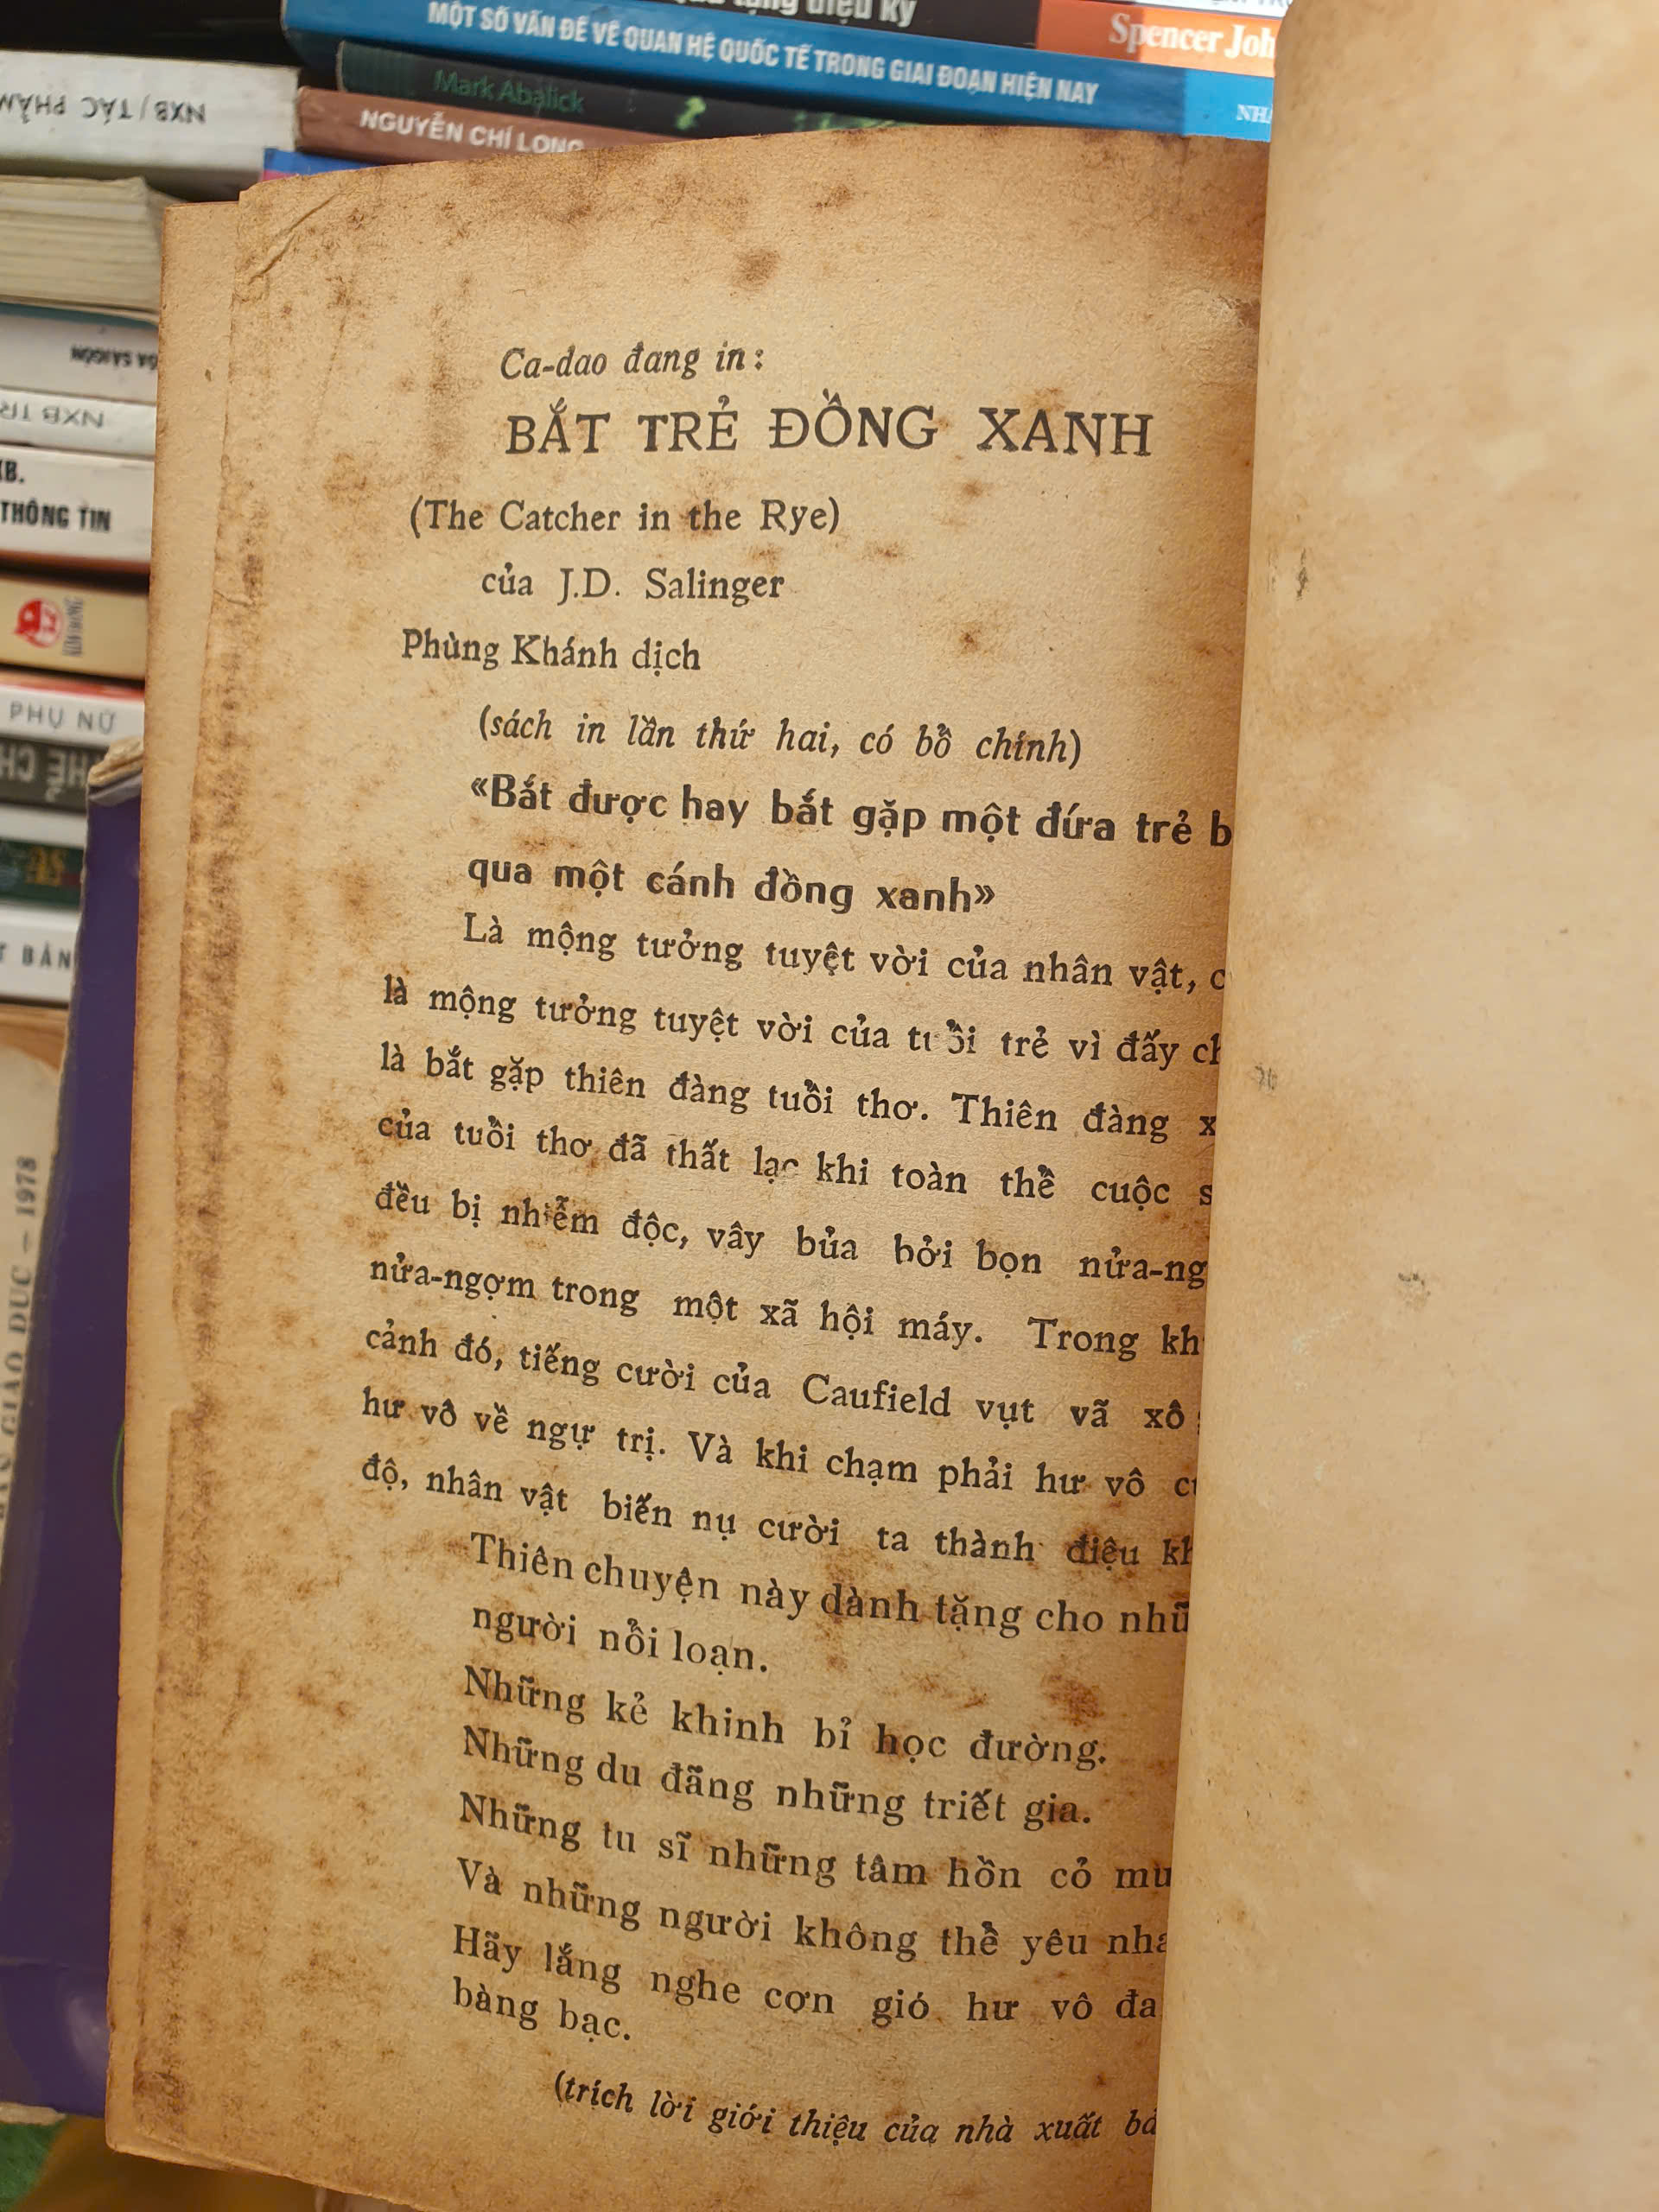 ỘT SỐ VẤN ĐỀ VỀ QUAN HỆ QUỐC TẾ TRONG GIAI ĐOẠN HIỆN NAY
Spencer Joh
Mark Abalick
NXB/TÁC PHẨM
NGUYỄN CHÍ LONG
NXB TR
THÔNG TIN
PHỤ NỮ
GIÁO DỤC – 1978
Ca-dao đang in :
BẮT TRẺ ĐỒNG XANH
(The Catcher in the Rye)
của J.D. Salinger
Phùng Khánh dịch
(sách in lần thứ hai, có bồ chính)
«Bắt được hay bắt gặp một đứa trẻ b
qua một cánh đồng xanh»
Là mộng tưởng tuyệt vời của nhân vật, c
là mộng tưởng tuyệt vời của tuồi trẻ vì đấy ch
là bắt gặp thiên đàng tuồi thơ. Thiên đàng x
của tuồi thơ đã thất lạc khi toàn thề cuộc s
đều bị nhiễm độc, vây bủa bởi bọn nửa-ng
nửa-ngợm trong một xã hội máy. Trong kh
cảnh đó, tiếng cười của Caufield vụt vã xô
hư vô về ngự trị. Và khi chạm phải hư vô c
độ, nhân vật biến nụ cười ta thành điệu kh
Thiên chuyện này dành tặng cho nhữ
người nồi loạn.
Những kẻ khinh bỉ học đường.
Những du đãng những triết gia.
Những tu sĩ những tâm hồn cỏ mu
Và những người không thề yêu nha
Hãy lắng nghe cơn gió hư vô đa
bàng bạc.
(trích lời giới thiệu của nhà xuất bả